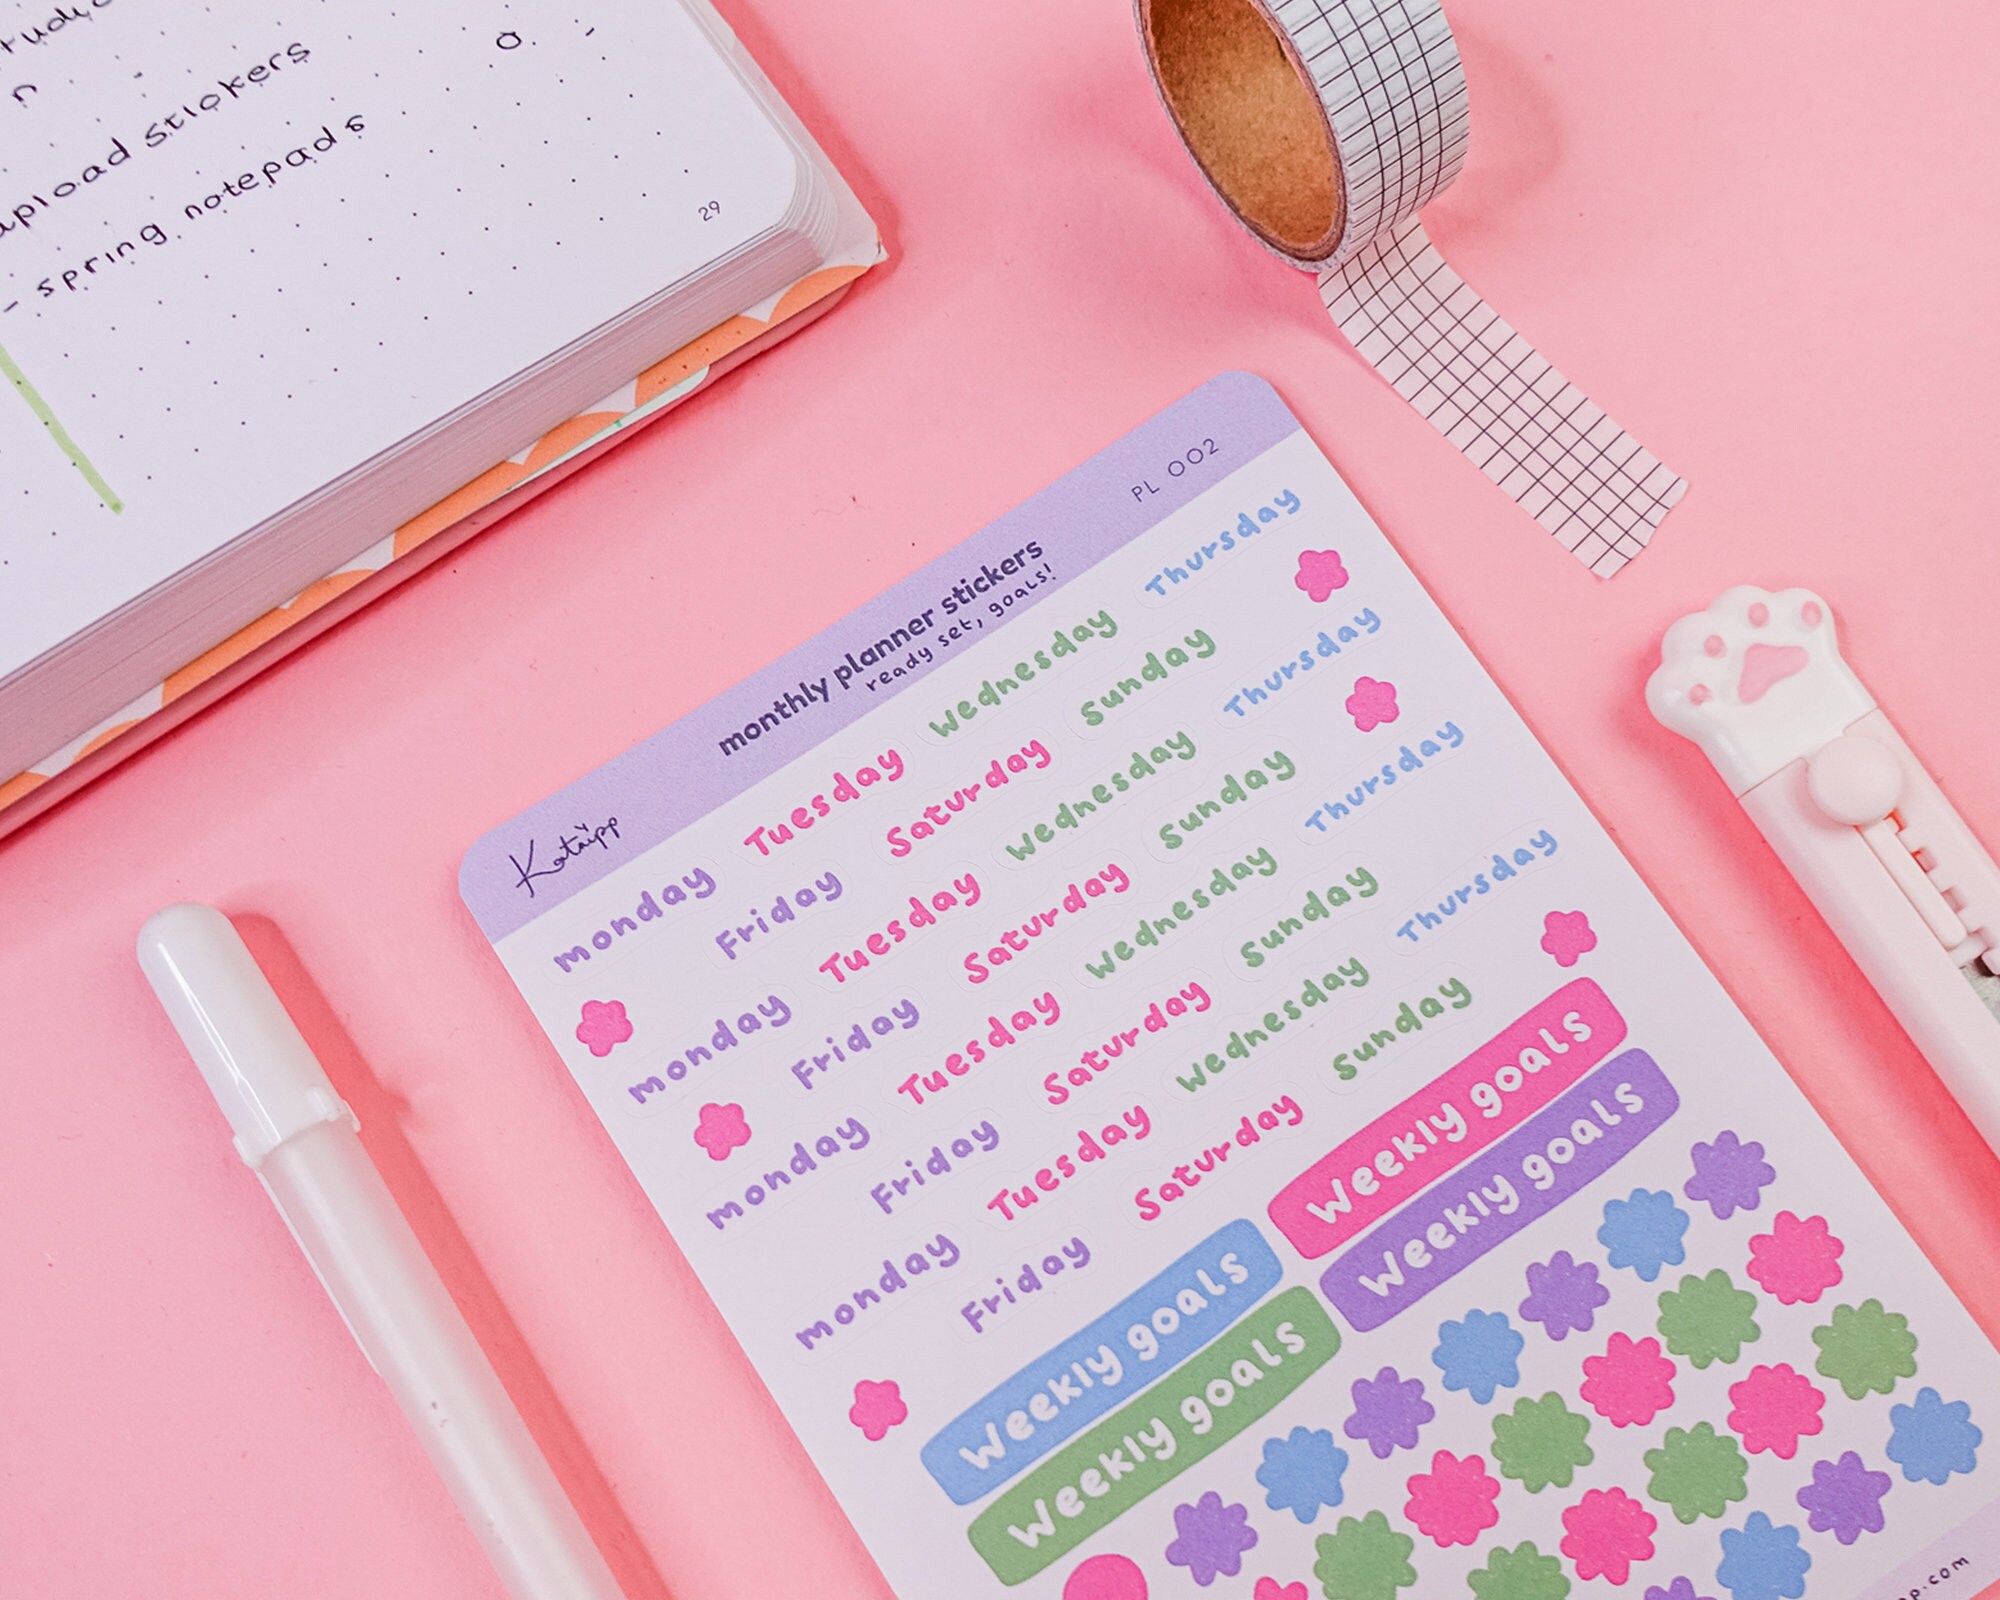 n
upload stickers
- spring notepads
29
Katnipp
monthly planner stickers
ready set, goals!
PL 002
monday Tuesday Wednesday Thursday
Friday Saturday Sunday
monday Tuesday Wednesday Thursday
Friday Saturday Sunday
monday Tuesday Wednesday Thursday
Friday Saturday Sunday
monday Tuesday Wednesday Thursday
Friday Saturday Sunday
Weekly goals Weekly goals
Weekly goals Weekly goals
p.com